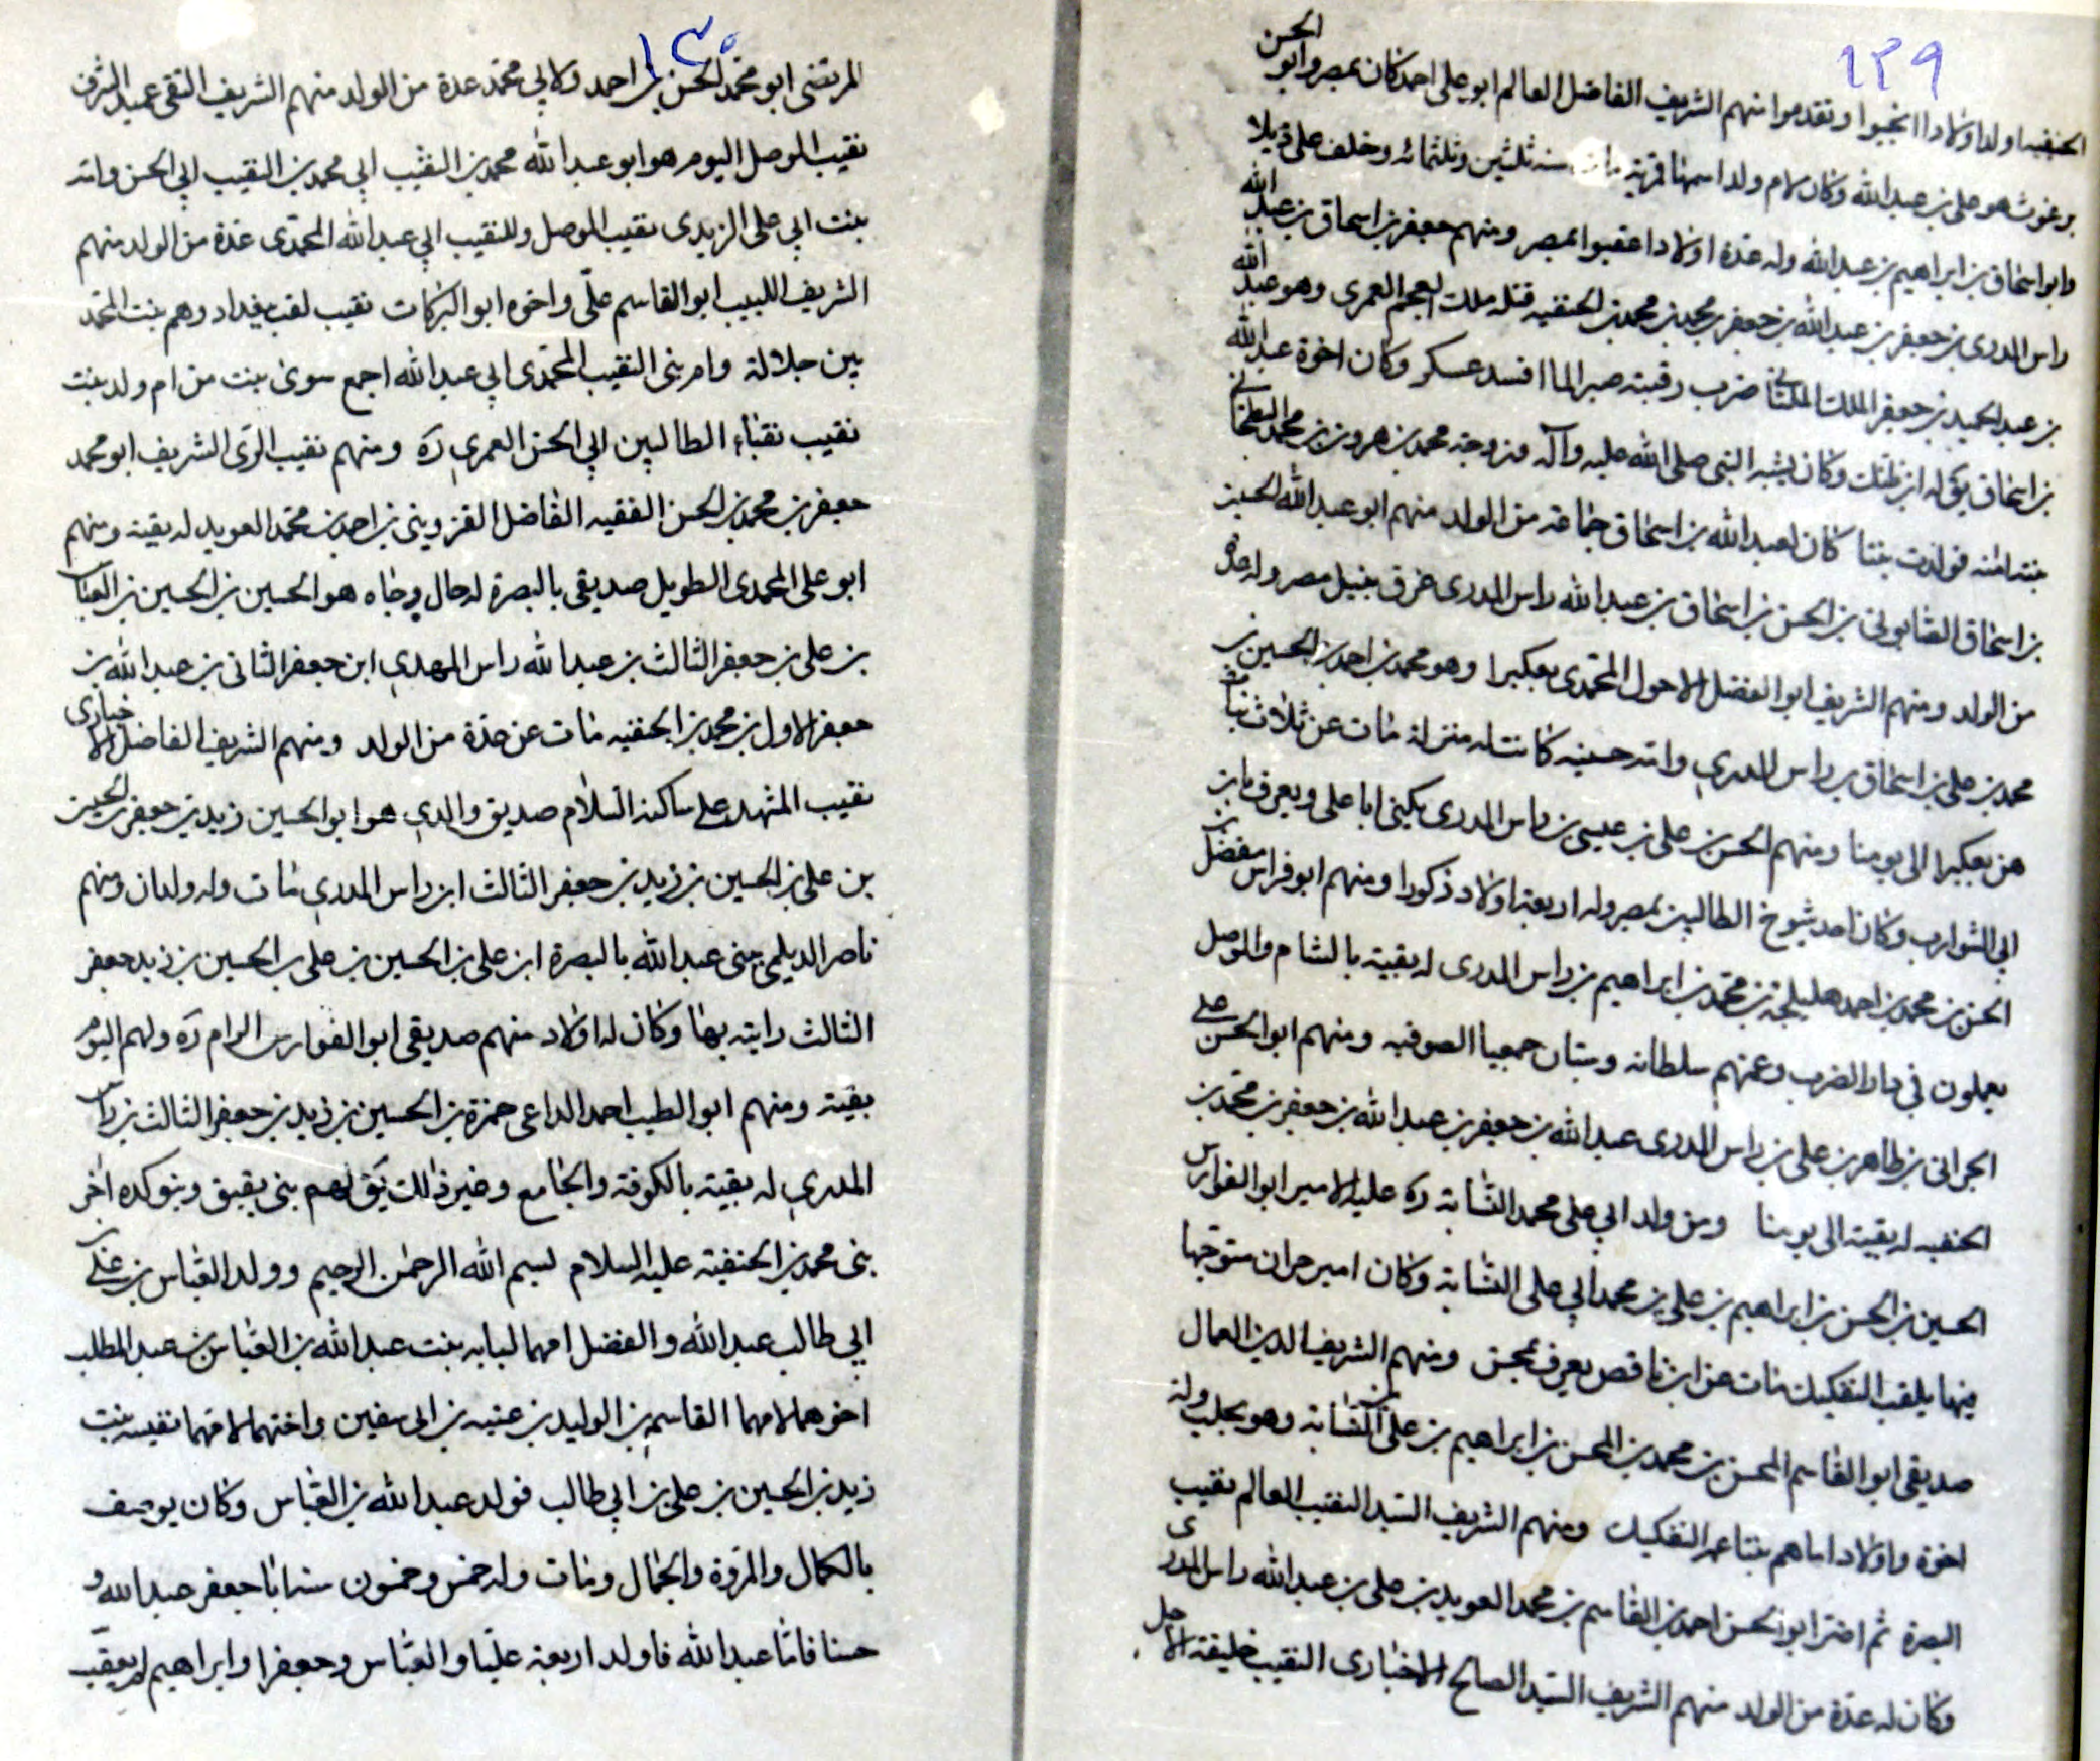 ١٢٩
الحنفيه اولد اولادا انجبوا وتقدموا منهم الشريف الفاضل العالم ابو على احمد كان بمصر وابو الحسن
برغوث هو على بن عبد الله وكان لام ولد اسمها سنه ثلثين وثلثمائه وخلف على ذيلا
وابو اسحاق بن ابراهيم بن عبد الله وله عدة اولاد اعقبوا بمصر ومنهم جعفر بن اسحاق بن عبد الله
راس المدرى بن جعفر بن عبد الله بن جعفر بن محمد بن محمد بن الحنفيه قتله ملك العمرى وهو عبد الله
بن عبد الحميد بن جعفر الملك الملتانى ضرب رقبته صبرا لما افسد عسكر وكان اخوة عبد الله
بن اسحاق يق له ابن ظنك وكان يشبه النبى صلى الله عليه وآله فزوجه محمد بن هرون بن محمد البطحانى
بنته امنه فولدت بنتا كان لعبد الله بن اسحاق جماعة من الولد منهم ابو عبد الله الحسين
بن اسحاق الصابونى بن الحسن بن اسحاق بن عبد الله راس المدرى غرق بنيل مصر وله عدة
من الولد ومنهم الشريف ابو الفضل الاحول المحمدى بعكبرا وهو محمد بن احمد بن الحسين بن
محمد بن على بن اسحاق بن راس المدرى وامه حسينه كانت له منزلة مات عن ثلاث بنات
هن بعكبرا الى يومنا ومنهم الحسن بن على بن عيسى بن راس المدرى يكنى ابا على ويعرف بابن
ابى الشوارب وكان احد شيوخ الطالبين بمصر وله اربعة اولاد ذكورا ومنهم ابو فراس مفضل بن
الحسن بن محمد بن احمد هليلجة بن محمد بن ابراهيم بن راس المدرى له بقية بالشام والموصل
يعملون فى دار الضرب وعنهم سلطانه الصوفيه ومنهم ابو الحسن على
الحرانى بن طاهر بن على بن راس المدرى عبد الله بن جعفر بن عبد الله بن جعفر بن محمد بن
الحنفيه له بقية الى يومنا ومن ولد ابى على محمد النسابة ره عليه الامير ابو الفوارس
الحسين بن الحسن بن ابراهيم بن على بن محمد ابى على النسابة وكان امير حران متوجها
منها يلقب التفكيك مات عن ابن ناقص يعرف بمحسن ومنهم الشريف الدين العمال
صديقى ابو القاسم المحسن بن محمد بن المحسن بن ابراهيم بن على بن النسابة وهو بحلب وله
اخوة واولاد امهم بنتا عم التفكيك ومنهم الشريف السيد النقيب العالم نقيب
البصرة ثم اضر ابو الحسن احمد بن القاسم بن محمد العويد بن على بن عبد الله راس المدرى
وكان له عدة من الولد منهم الشريف السيد الصالح الاخبارى النقيب خليفة الاجل
١٣٠
المرتضى ابو محمد الحسن بن احمد ولابى محمد عدة من الولد منهم الشريف التقى عميد الشرف
نقيب الموصل اليوم هو ابو عبد الله محمد بن النقيب ابى محمد بن النقيب ابى الحسن وامه
بنت ابى على الزيدى نقيب الموصل وللنقيب ابى عبد الله المحمدى عدة من الولد منهم
الشريف اللبيب ابو القاسم على واخوه ابو البركات نقيب لقب ببغداد وهم بنت المحمد
بين جلالة وام بنى النقيب المحمدى ابى عبد الله اجمع سوى بنت من ام ولد بنت
نقيب نقباء الطالبين ابى الحسن العمرى ره ومنهم نقيب الرى الشريف ابو محمد
جعفر بن محمد بن الحسن الفقيه الفاضل القزوينى بن احمد بن محمد العويد له بقية ومنهم
ابو على المحمدى الطويل صديقى بالبصرة له حال وجاه هو الحسين بن الحسين بن العباس
بن على بن جعفر الثالث بن عبد الله راس المهدى ابن جعفر الثانى بن عبد الله بن
جعفر الاول بن محمد بن الحنفيه مات عن عدة من الولد ومنهم الشريف الفاضل الاخبارى
نقيب المشهد على ساكنه السلام صديق والدى هو ابو الحسين زيد بن جعفر بن الحسين
بن على بن الحسين بن زيد بن جعفر الثالث ابن راس المدرى مات وله ولدان ومنهم
ناصر الديلمى عنى عبد الله بالبصرة ابن على بن الحسين بن على بن الحسين بن زيد جعفر
الثالث رايته بها وكان له اولاد منهم صديقى ابو الفوارس الرام ره ولهم اليوم
بقية ومنهم ابو الطيب احمد الداعى حمزة بن الحسين بن زيد بن جعفر الثالث بن راس
المدرى له بقية بالكوفة والجامع وغير ذلك يق لهم بنى بقبق وبنو كده اخر
بنى محمد بن الحنفية عليه السلام بسم الله الرحمن الرحيم وولد العباس بن على بن
ابى طالب عبد الله والفضل امهما لبابه بنت عبد الله بن العباس بن عبد المطلب
اخوهما لامهما القاسم بن الوليد بن عتبه بن ابى سفين واختهما لامهما نفيسه بنت
زيد بن الحسين بن على بن ابى طالب فولد عبد الله بن العباس وكان يوصف
بالكمال والمروة والجمال ومات وله خمس وخمسون سنه ابا جعفر عبد الله و
حسنا فاما عبد الله فاولد اربعة عليا والعباس وجعفرا وابراهيم لم يعقب